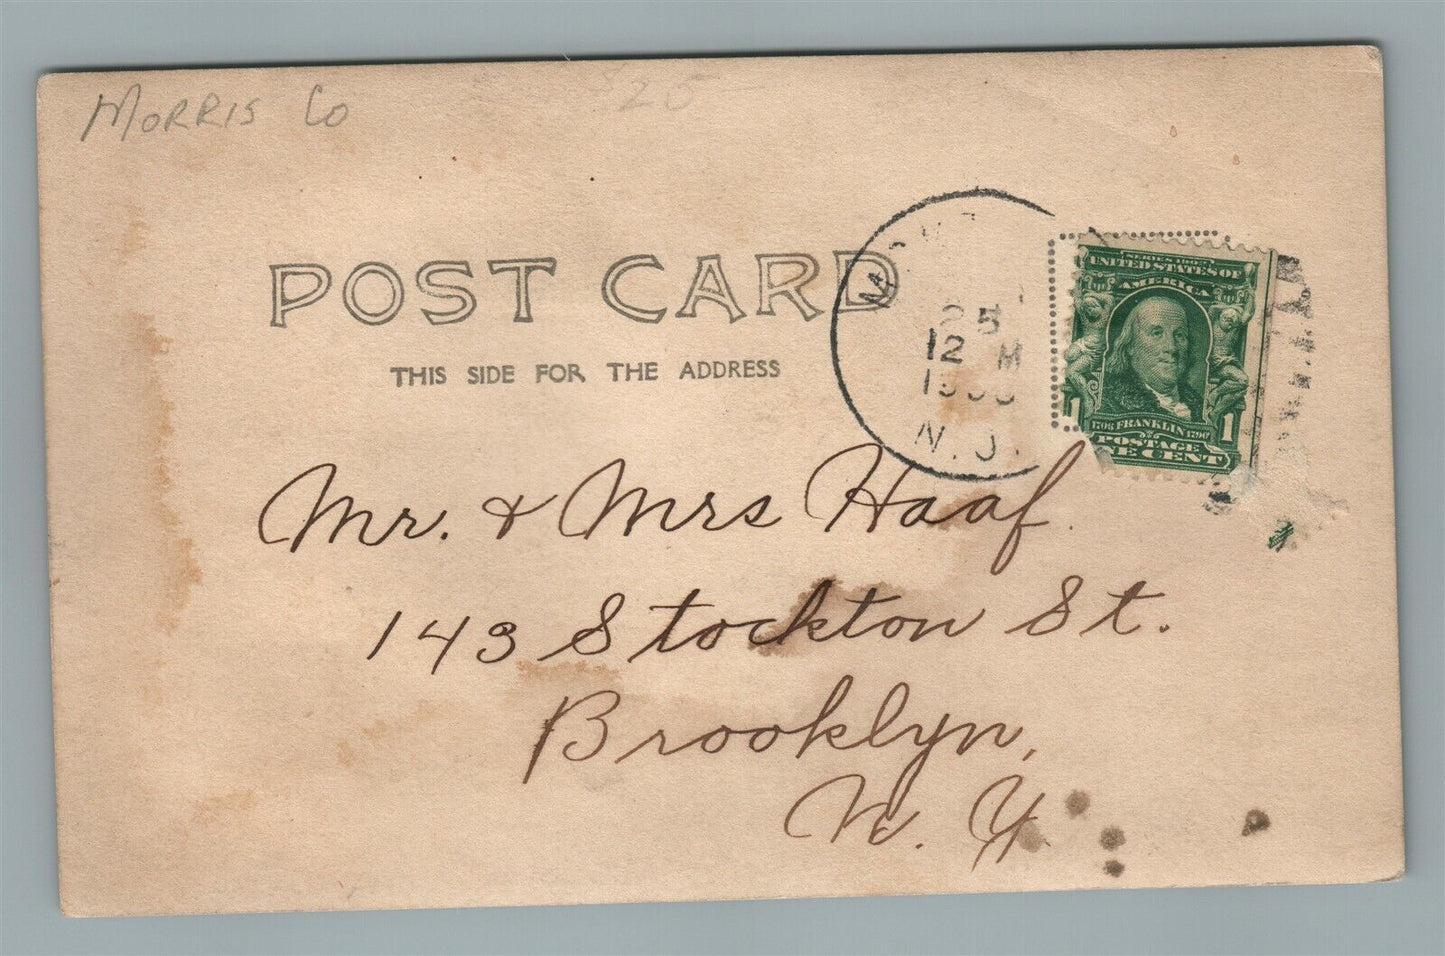 MORRIS Co
$25
POST CARD
THIS SIDE FOR THE ADDRESS
25
12 M
N.J.
SERIES 1902
UNITED STATES OF
AMERICA
1 1
1706 FRANKLIN 1790
POSTAGE
NE CENT
Mr. & Mrs Haaf.
143 Stockton St.
Brooklyn,
N. Y.